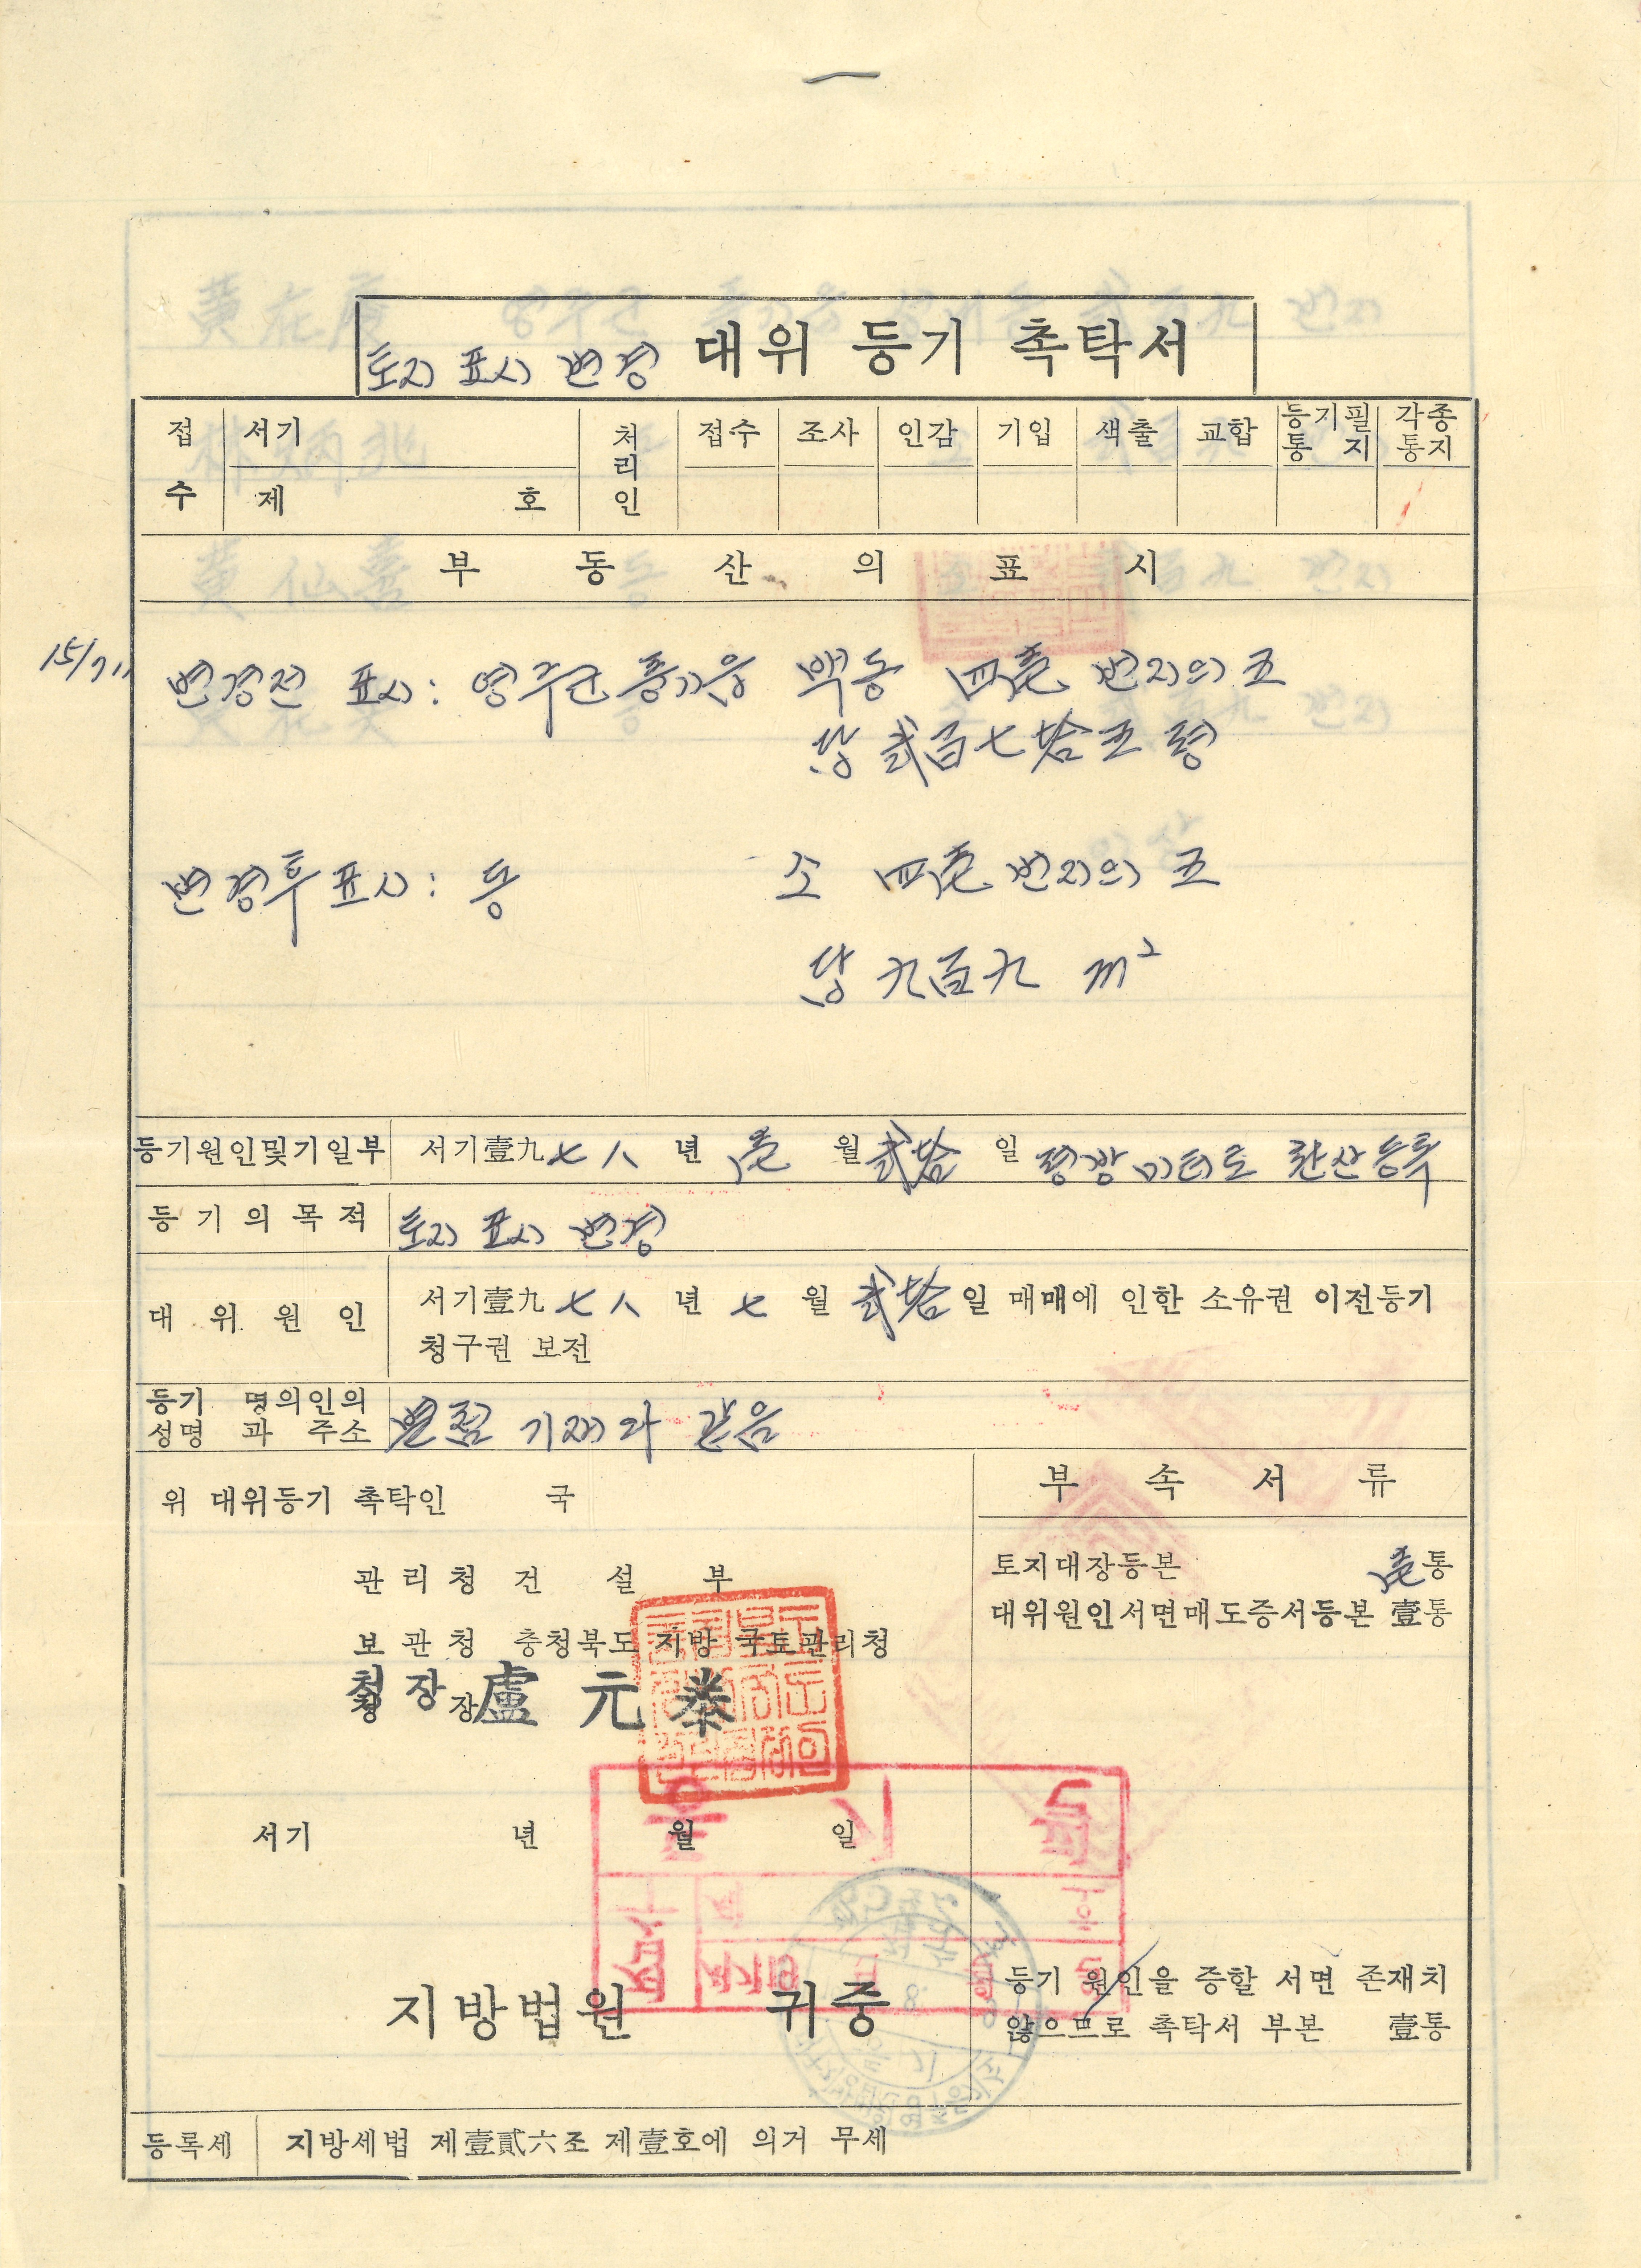 토지 표시 변경 대위 등기 촉탁서
접수 서기 제 호 처리인 접수 조사 인감 기입 색출 교합 등기필통지 각종통지
부동산의 표시
변경전 표시: 영주군 풍기읍 백동 四壱 번지의 五
답 弐百七拾五 평
변경후 표시: 동 소 四壱 번지의 五
답 九百九 m²
등기원인및기일부 서기壹九七八 년 壱 월 弐拾 일 평방미터로 환산등록
등기의목적 토지 표시 변경
대위원인 서기壹九七八 년 七 월 弐拾 일 매매에 인한 소유권 이전등기
청구권 보전
등기 명의인의 성명 과 주소 별첨 기재와 같음
위 대위등기 촉탁인 국
부속서류
관리청 건설부
토지대장등본 壱통
대위원인서면매도증서등본 壹통
보관청 충청북도 지방 국토관리청
청장 盧元泰
청 장
서기 년 월 일
등기 원인을 증할 서면 존재치
않으므로 촉탁서 부본 壹통
지방법원 귀중
등록세 지방세법 제壹貳六조 제壹호에 의거 무세